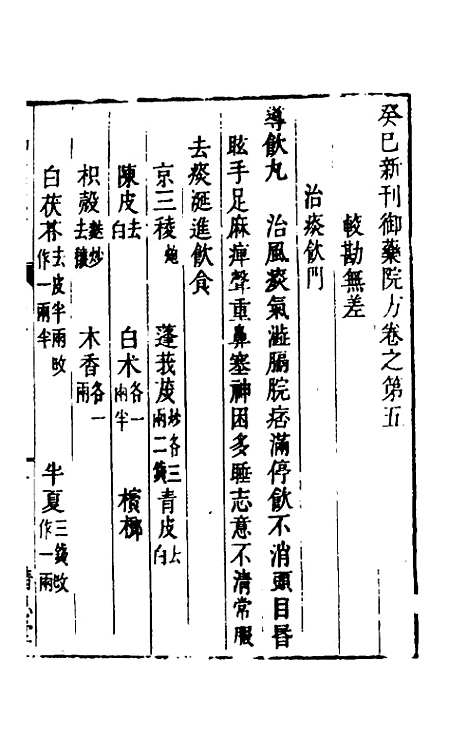 癸巳新刊御藥院方卷之第五
較勘無差
治痰飲門
導飲丸　治風痰氣澁膈脘痞滿停飲不消頭目昏
眩手足麻痺聲重鼻塞神困多睡志意不清常服
去痰涎進飲食
京三稜炮　蓬莪茂炒各三兩二錢　青皮去白
陳皮去白　白术各一兩半　檳榔
枳殼麩炒去穰　木香各一兩
白茯苓去皮半兩改作一兩半　半夏三錢改作一兩